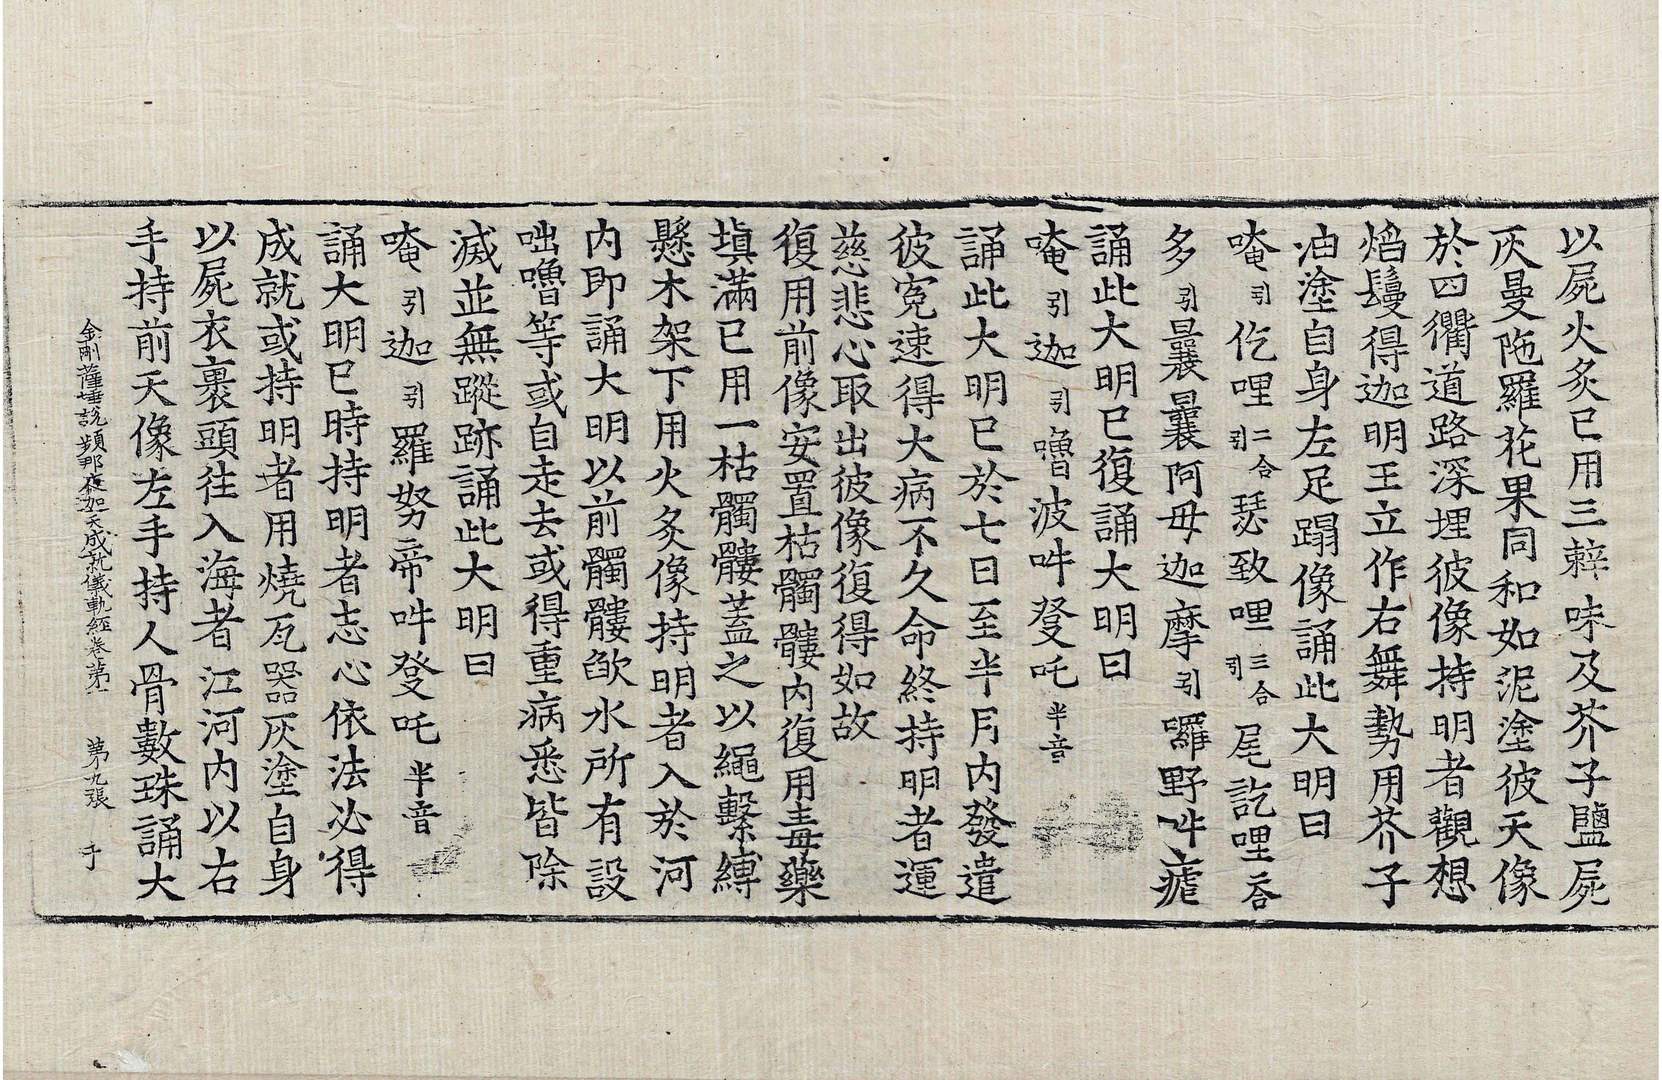 以屍火炙已用三辢味及芥子鹽屍
灰曼陁羅花果同和如泥塗彼天像
於四衢道路深埋彼像持明者觀想
焰鬘得迦明王立作右舞勢用芥子
油塗自身左足蹋像誦此大明曰
唵引仡哩二合引瑟致哩三合引尾訖哩二合
多引曩曩阿毋迦摩引囉野吽癹
誦此大明已復誦大明曰
唵引迦引嚕波吽癹吒半音
誦此大明已於七日至半月內發遣
彼寃速得大病不久命終持明者運
慈悲心取出彼像復得如故
復用前像安置枯髑髏內復用毒藥
塡滿已用一枯髑髏蓋之以繩繫縛
懸木架下用火炙像持明者入於河
內即誦大明以前髑髏㰱水所有設
咄嚕等或自走去或得重病悉皆除
滅並無蹤跡誦此大明曰
唵引迦引羅努帝吽癹吒半音
誦大明已時持明者志心依法必得
成就或持明者用燒瓦器灰塗自身
以屍衣裹頭往入海者江河內以右
手持前天像左手持人骨數珠誦大
金剛薩埵說頻那夜迦天成就儀軌經卷第一 第九張 于